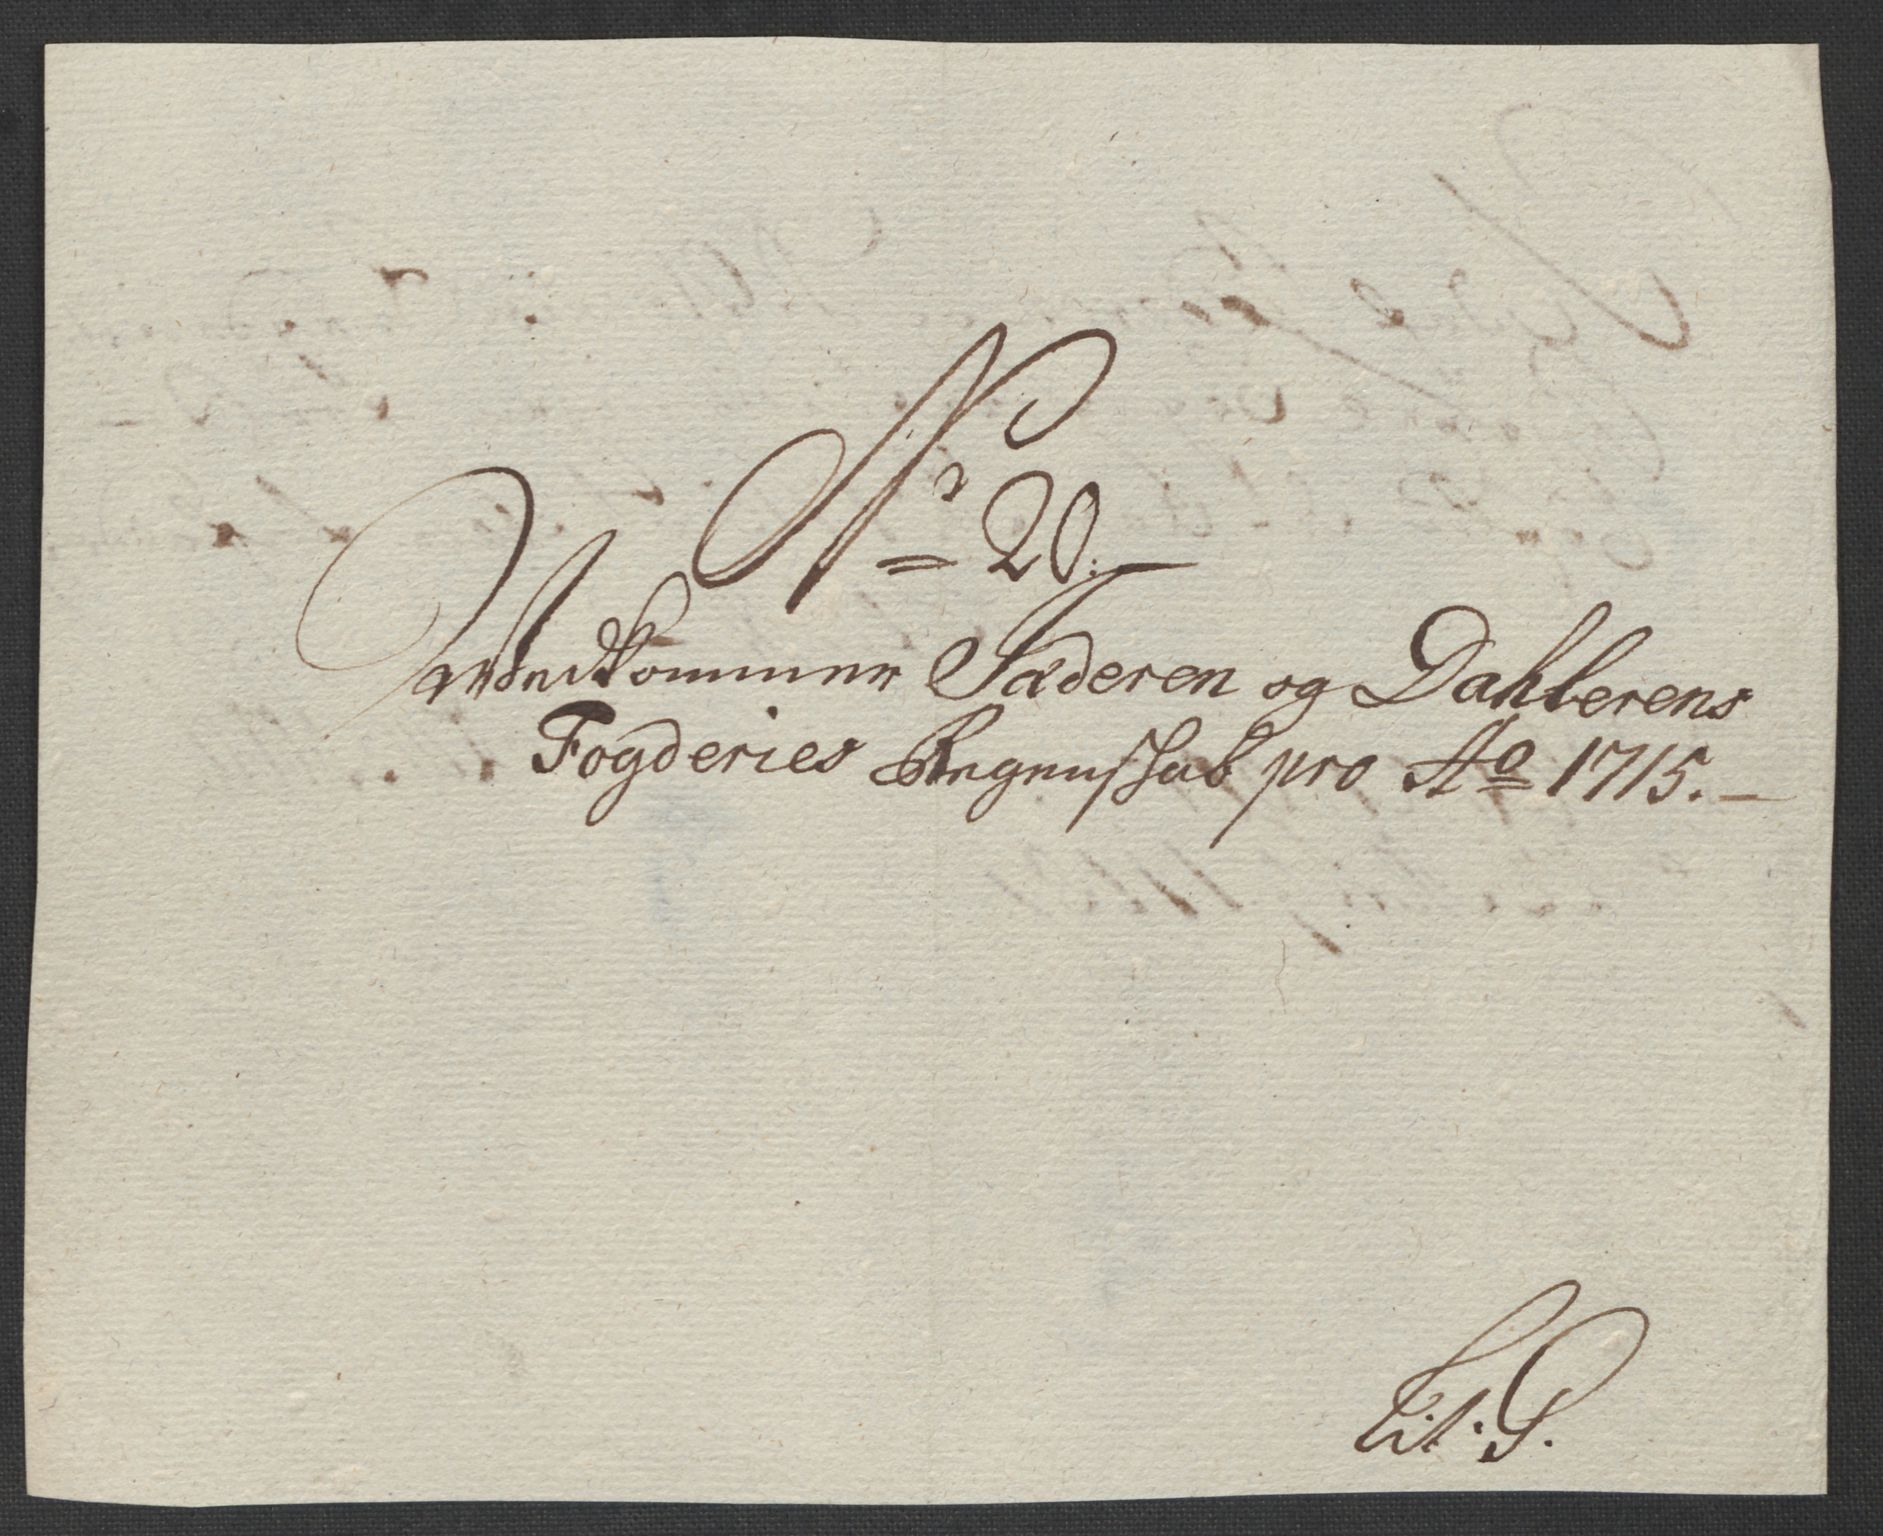 No 20.
Vedkommer Jæderen og Dahlerens
Fogderies Regnskab pro Ao 1715.
Lit. S.